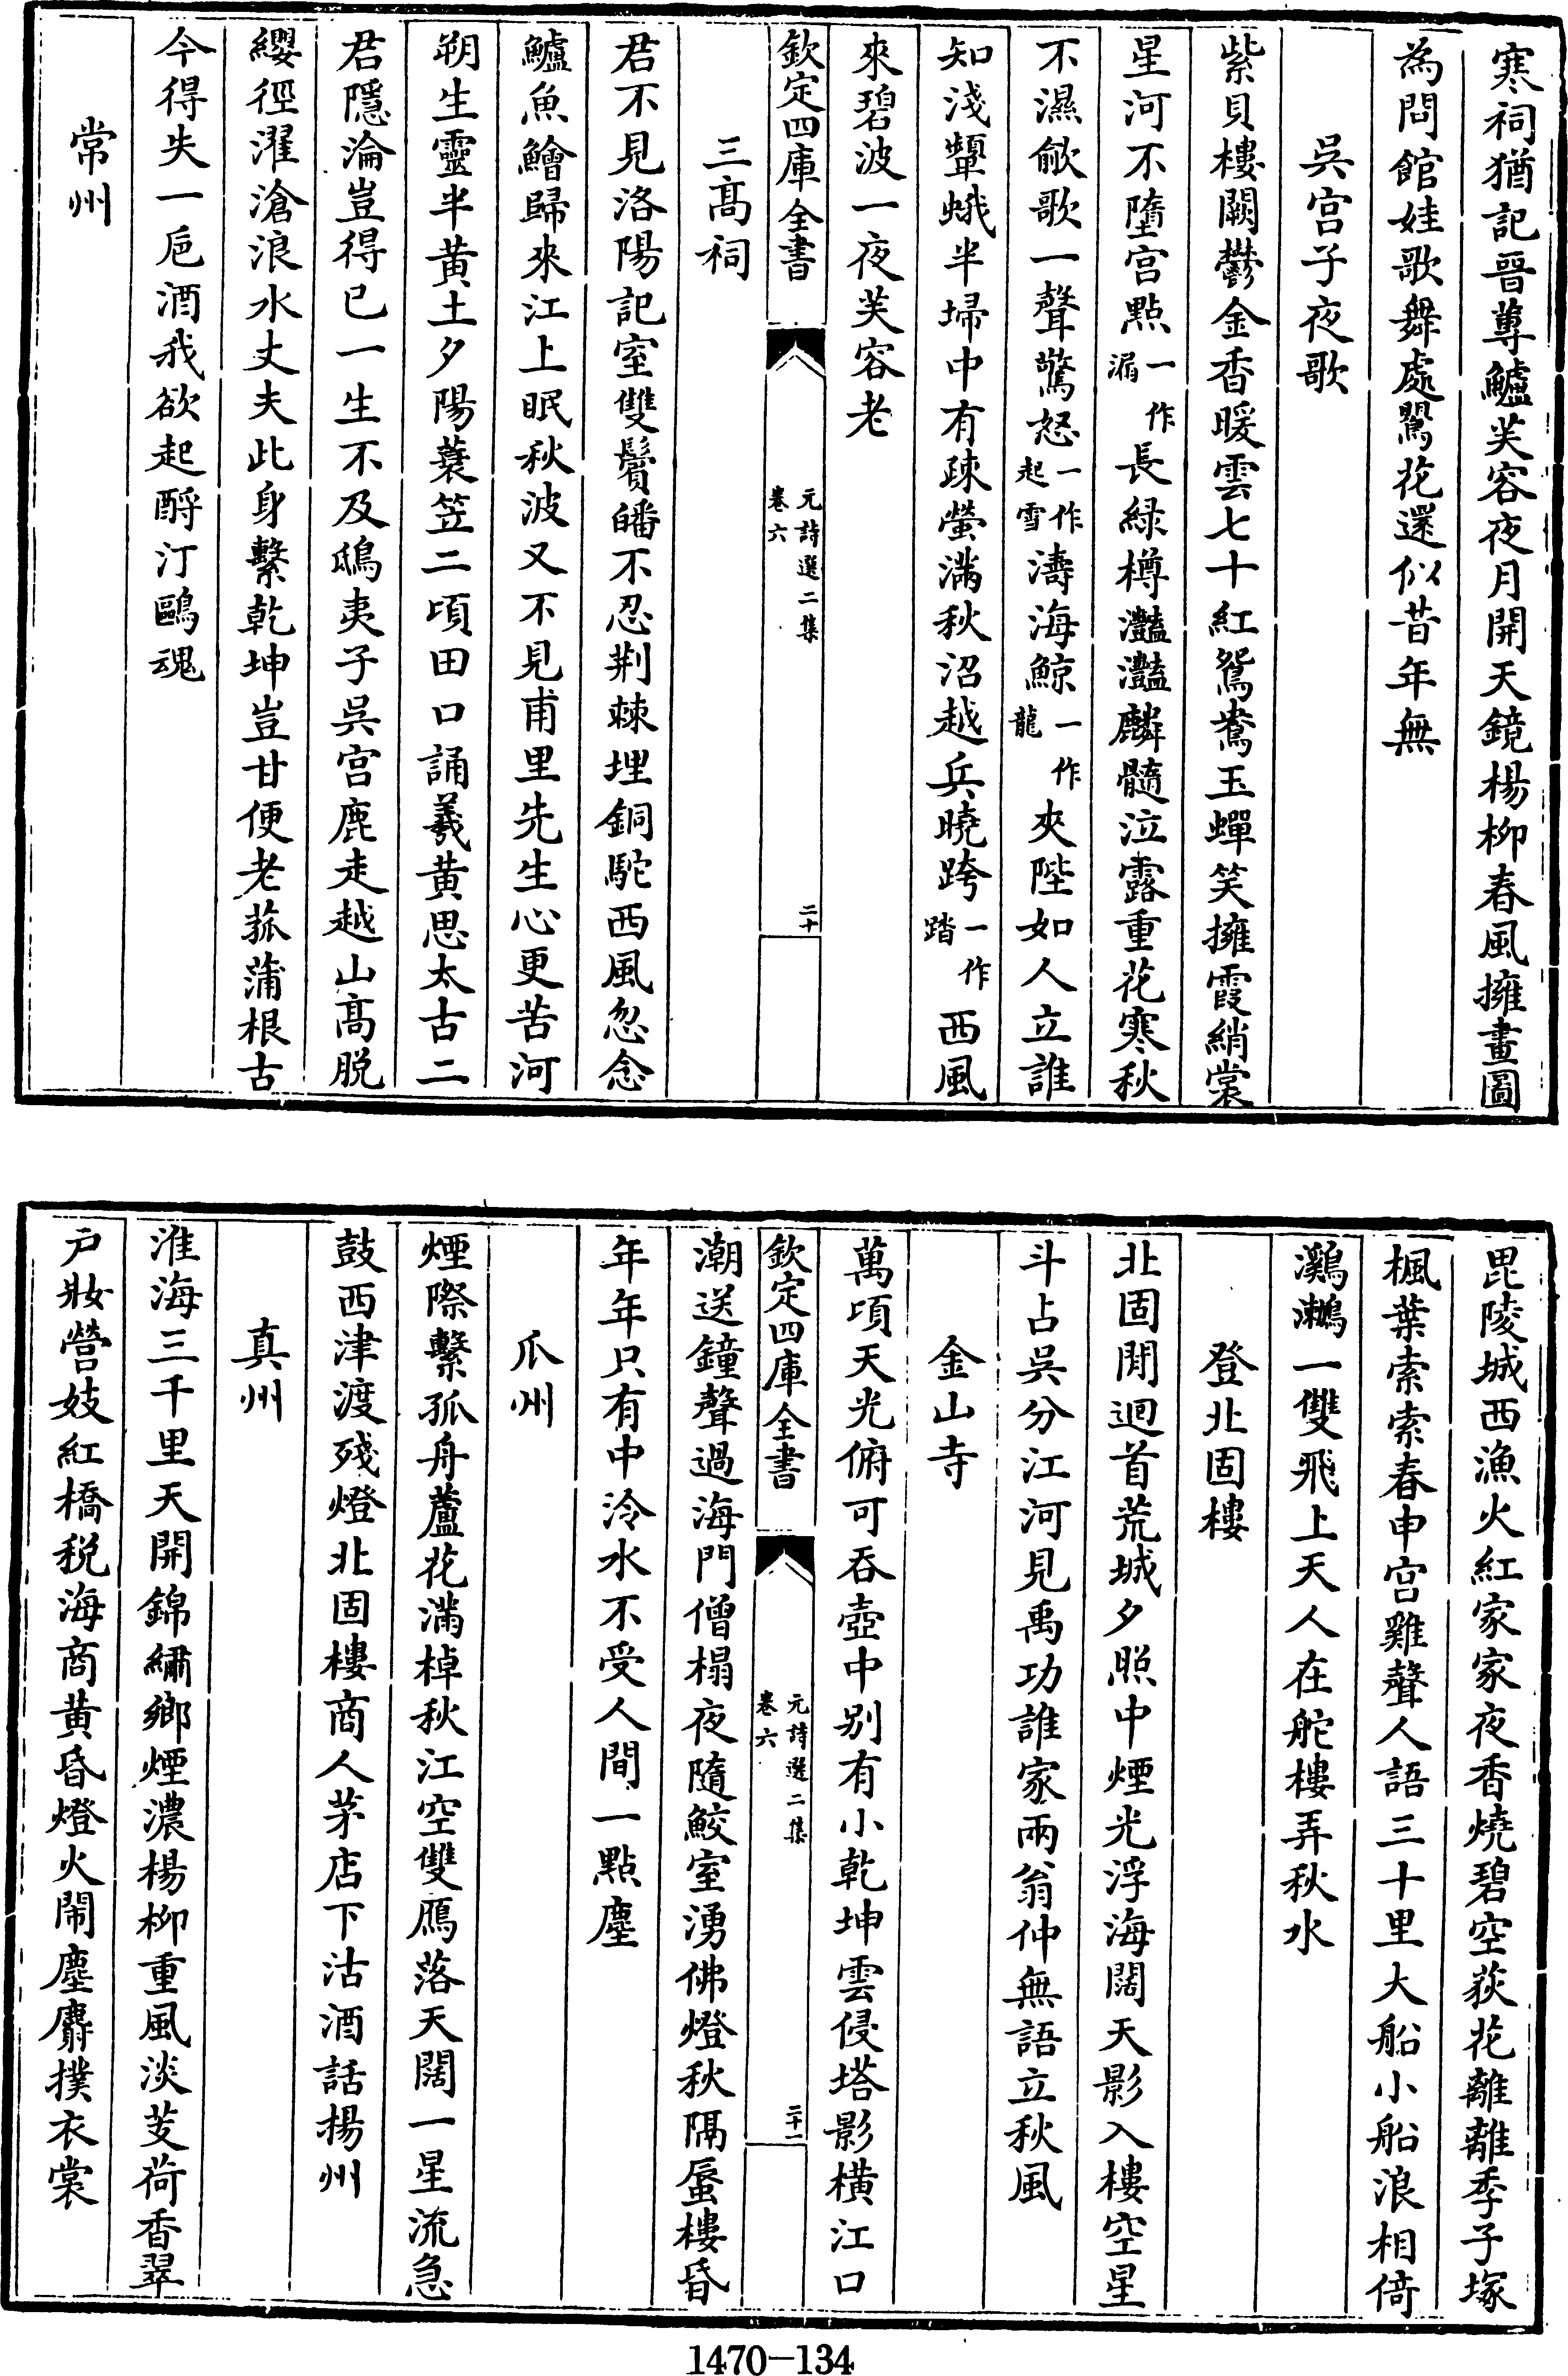 寒祠猶記晉蓴鱸芙容夜月開天鏡楊柳春風擁畫圖
為問館娃歌舞處鸎花還似昔年無
吳宫子夜歌
紫貝樓闕鬱金香暖雲七十紅鴛鴦玉蟬笑擁霞綃裳
星河不墮宫點一作漏長緑樽灩灩麟髓泣露重花寒秋
不濕歈歌一聲驚怒一作起雪濤海鯨一作龍夾陛如人立誰
知淺顰蛾半埽中有疎螢滿秋沼越兵曉跨一作踏西風
來碧波一夜芙容老
欽定四庫全書
元詩選二集
卷六
二十
三髙祠
君不見洛陽記室雙鬢皤不忍荆棘埋銅駝西風忽念
鱸魚鱠歸來江上眠秋波又不見甫里先生心更苦河
朔生靈半黄土夕陽蓑笠二頃田口誦羲黄思太古二
君隱淪豈得已一生不及鴟夷子吳宫鹿走越山髙脱
纓徑濯滄浪水丈夫此身繫乾坤豈甘便老菰蒲根古
今得失一巵酒我欲起酹汀鷗魂
常州
毘陵城西漁火紅家家夜香燒碧空荻花離離季子塚
楓葉索索春申宫雞聲人語三十里大船小船浪相倚
鸂鶒一雙飛上天人在舵樓弄秋水
登北固樓
北固閒迴首荒城夕照中煙光浮海闊天影入樓空星
斗占吳分江河見禹功誰家兩翁仲無語立秋風
金山寺
萬頃天光俯可吞壺中别有小乾坤雲侵塔影横江口
欽定四庫全書
元詩選二集
卷六
二十一
潮送鐘聲過海門僧榻夜隨鮫室湧佛燈秋隔蜃樓昏
年年只有中泠水不受人間一點塵
瓜州
煙際繫孤舟蘆花滿棹秋江空雙鴈落天闊一星流急
鼓西津渡殘燈北固樓商人茅店下沽酒話揚州
真州
淮海三千里天開錦繡鄉煙濃楊柳重風淡芰荷香翠
户妝營妓紅橋税海商黄昏燈火鬧塵麝撲衣裳
1470-134